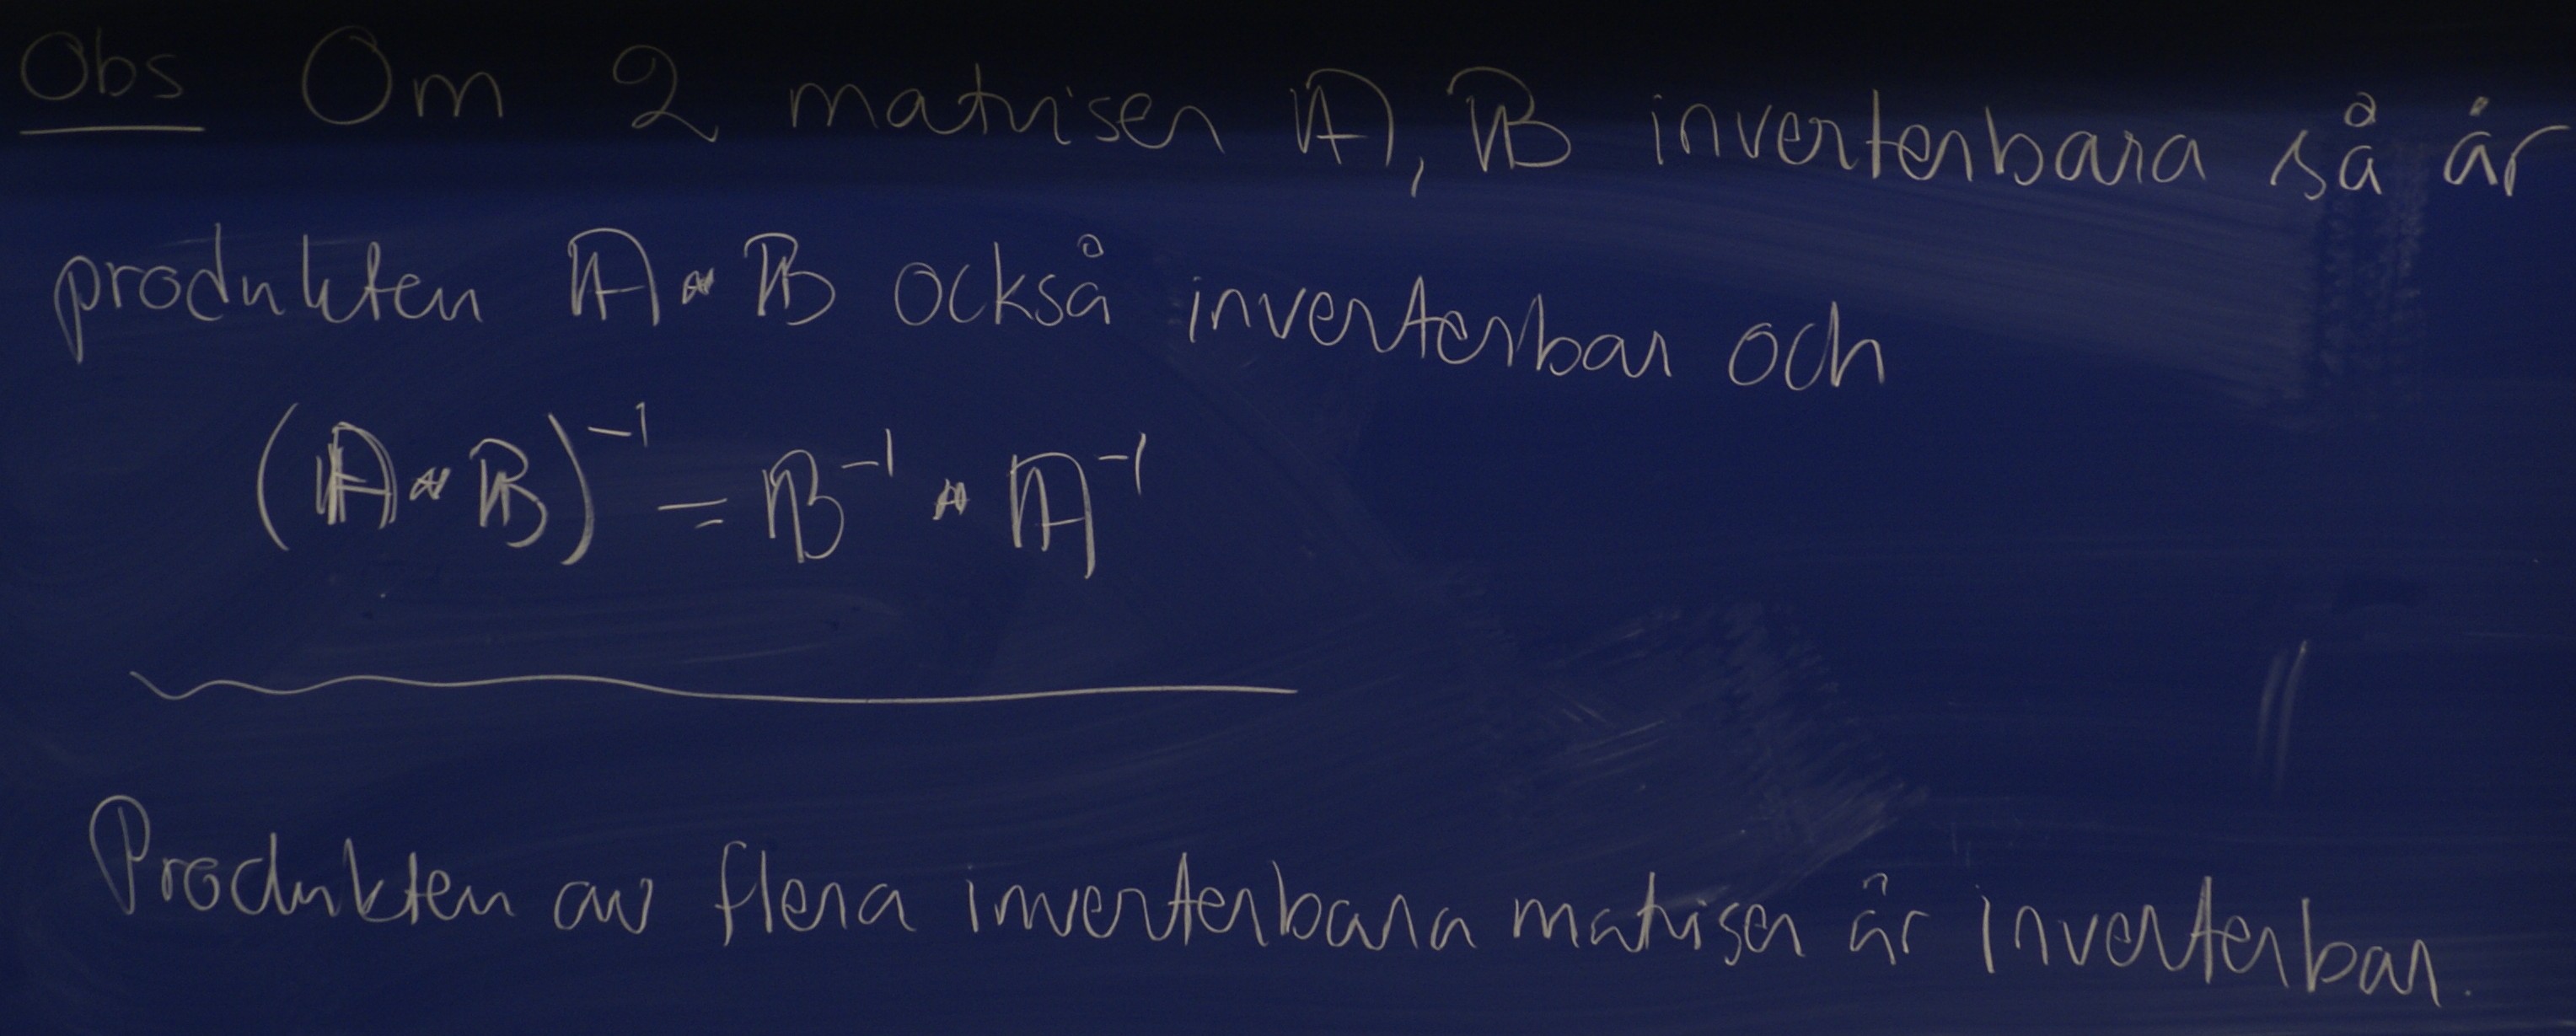 Obs Om 2 matriser A, B inverterbara så är
produkten A · B också inverterbar och
(A · B)⁻¹ = B⁻¹ · A⁻¹
Produkten av flera inverterbara matriser är inverterbar.